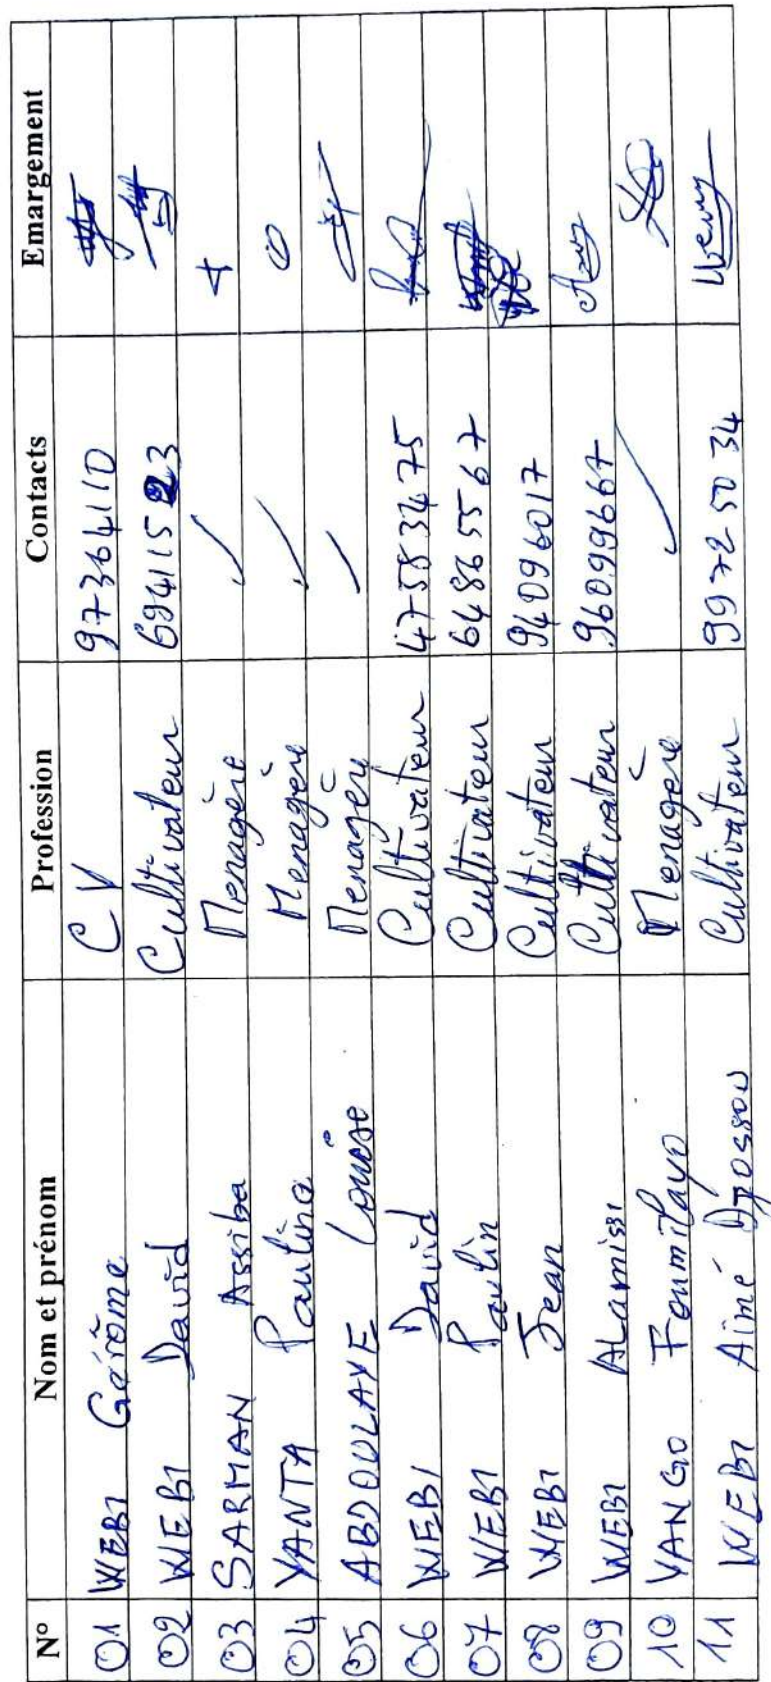 N° Nom et prénom Profession Contacts Emargement
01 WEBI Gérôme CV 97364110
02 WEBI David Cultivateur 69411523
03 SARMAN Assiba Menagère
04 YANTA Pauline Menagère
05 ABDOULAYE Louise Menagère
06 WEBI David Cultivateur
07 WEBI Paulin Cultivateur 64865567
08 WEBI Jean Cultivateur 94096017
09 WEBI Alamissi Cultivateur 96099667
10 YANGO Foumilayo Menagère
11 WEBI Aimé Cultivateur 99725034